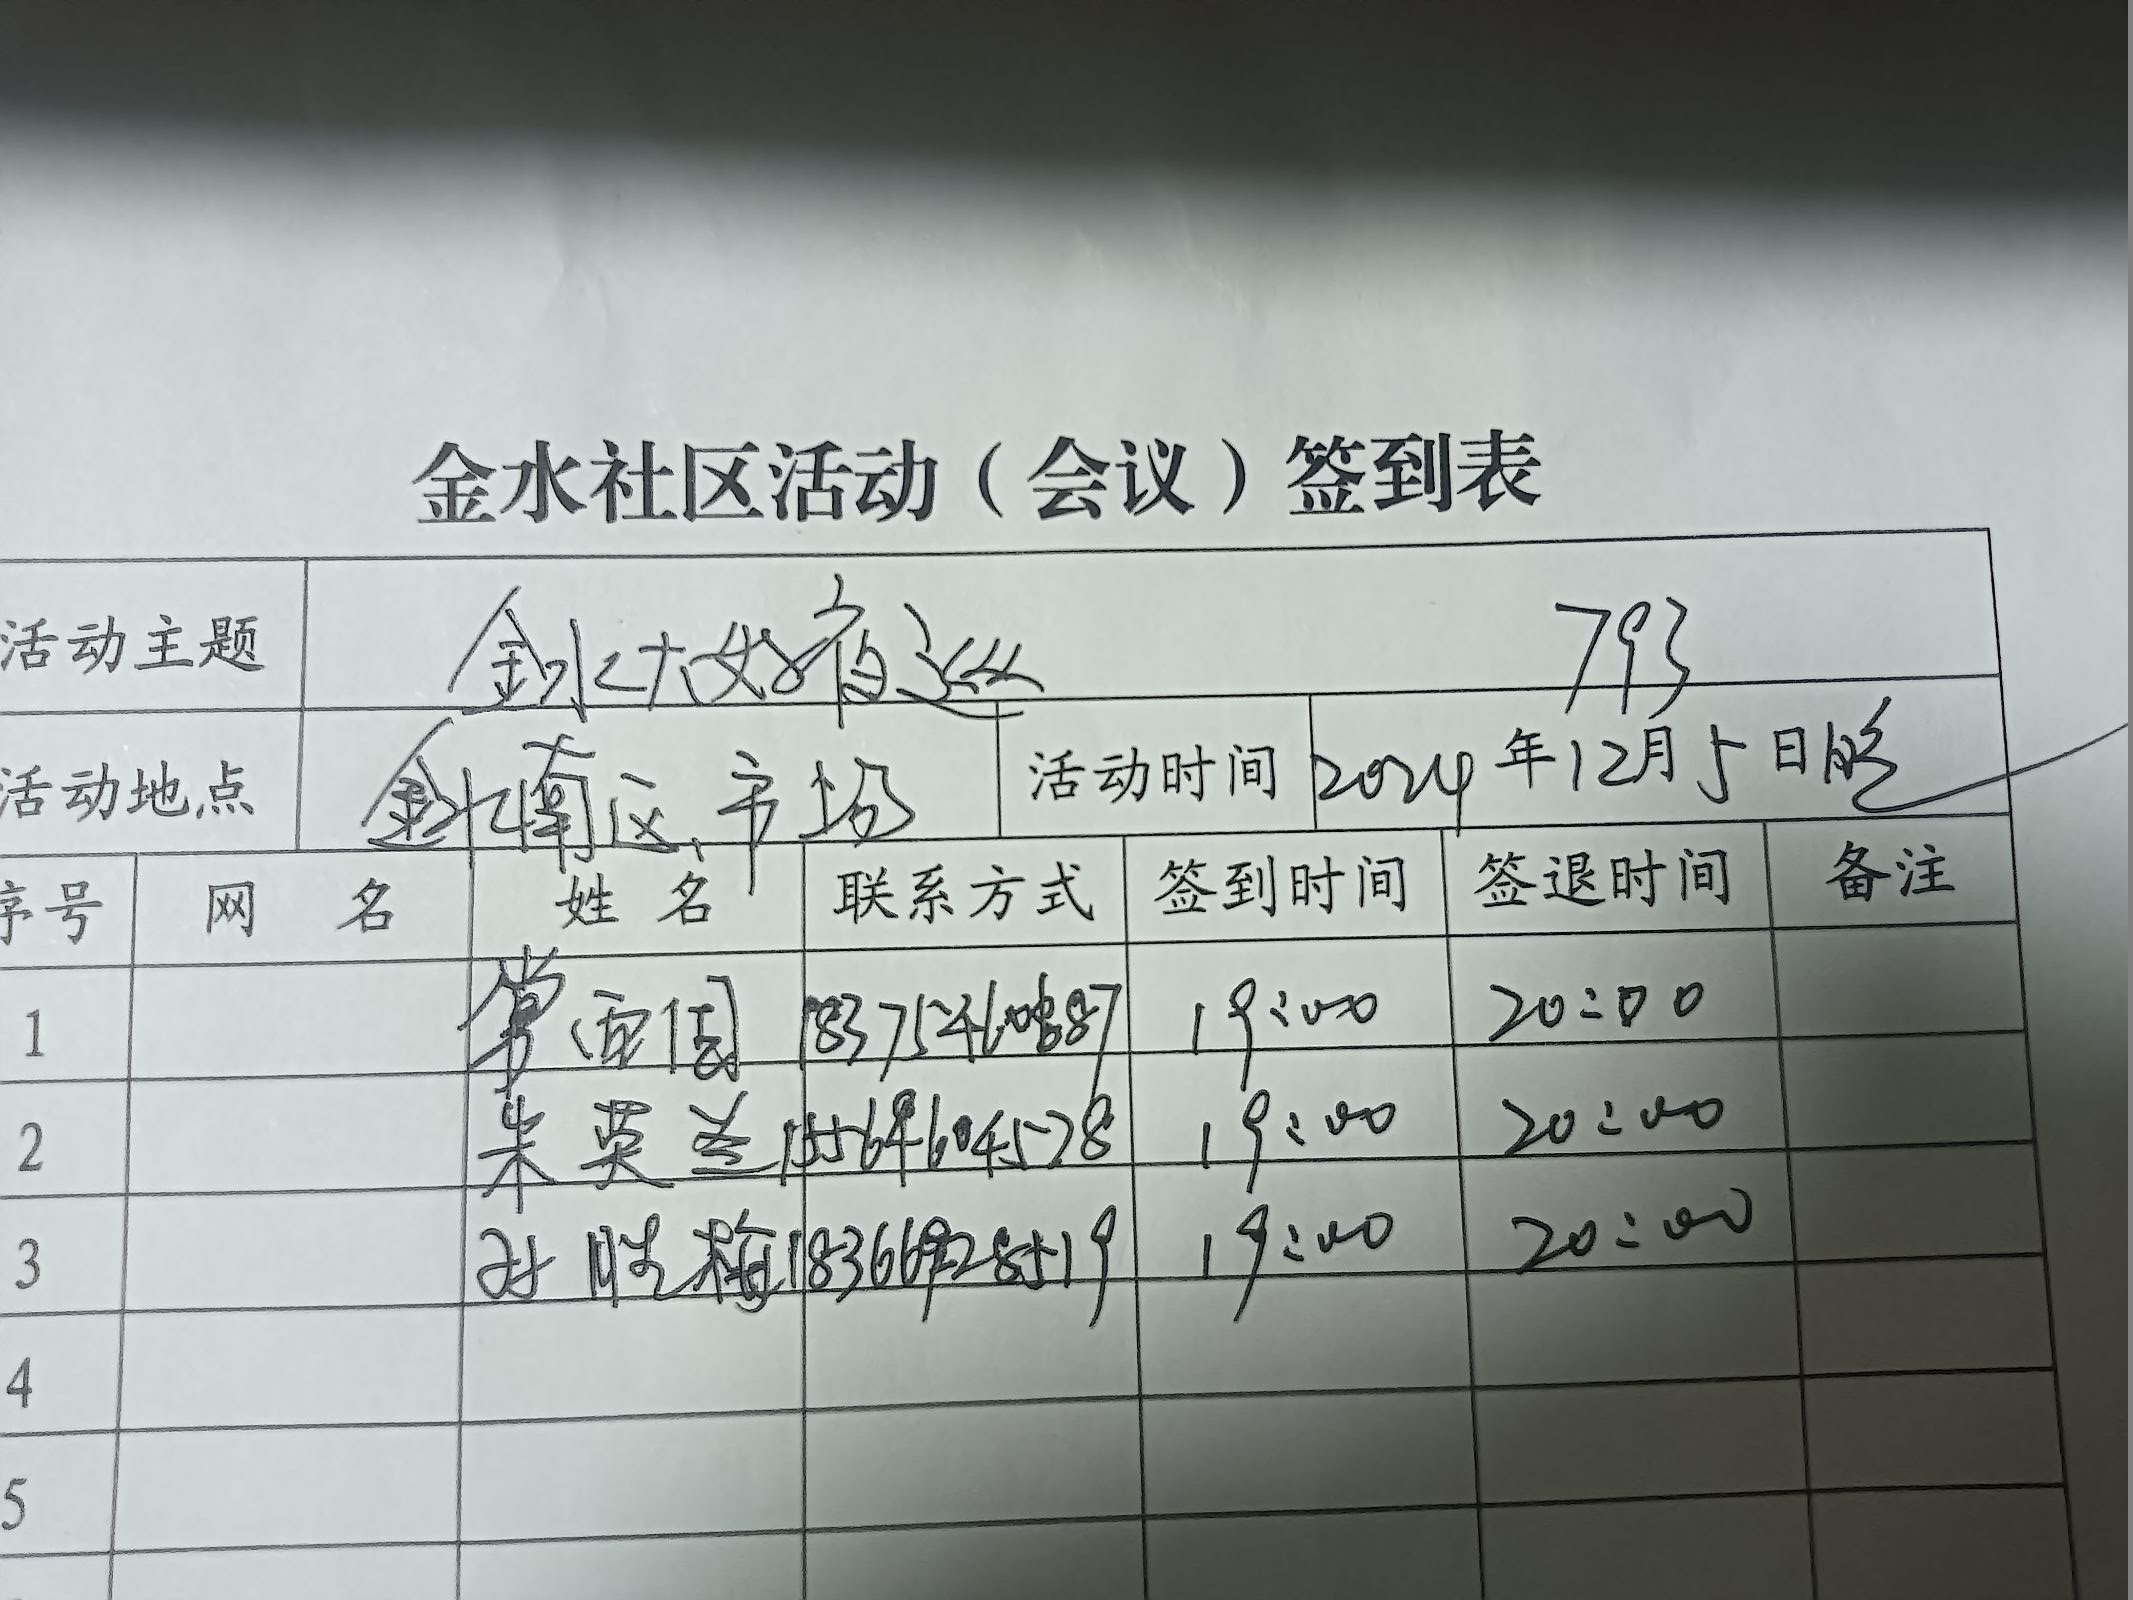 金水社区活动（会议）签到表
活动主题 金水大妈夜巡 793
活动地点 金水南区、市场 活动时间 2024年12月5日晚
序号 网 名 姓 名 联系方式 签到时间 签退时间 备注
1 19:00 20:00
2 朱英兰 15564604578 19:00 20:00
3 孙胜梅 19:00 20:00
4
5